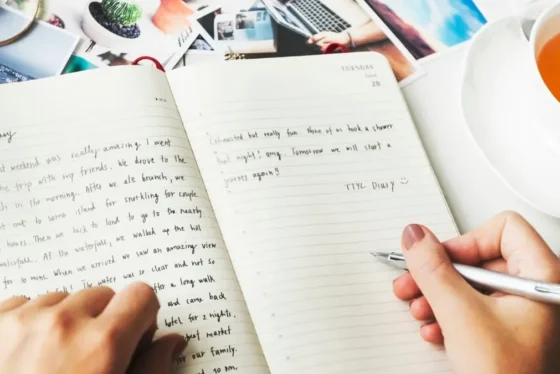 weekend was really amazing. I went
trip with my friends. We drove to the
in the morning. After we ate brunch, we
out to some island for snorkling for couple
hours. Then we back to land to go to the nearby
waterfall. At the waterfall, we walked up the hill
for 10 mins. When we arrived we saw an amazing view
The water was so clear and not so
after a long walk
and came back
hotel for 2 nights.
market
for our family.
TUESDAY
28
Exhausted but really fun. None of us took a shower
last night! omg. Tomorrow we will start a
journey again!!
TTYL Diary ☺